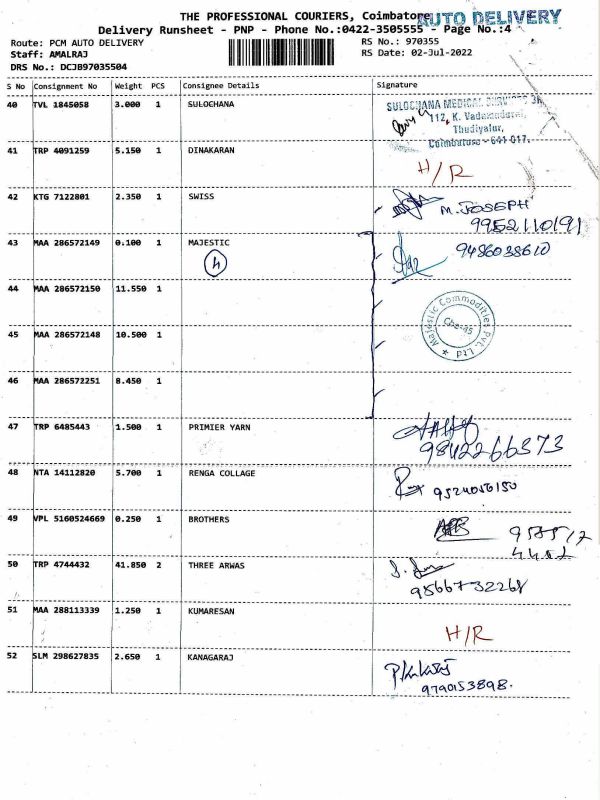 THE PROFESSIONAL COURIERS, Coimbatore
AUTO DELIVERY
Delivery Runsheet - PNP - Phone No.:0422-3505555 - Page No.:4
Route: PCM AUTO DELIVERY RS No.: 970355
Staff: AMALRAJ RS Date: 02-Jul-2022
DRS No.: DCJB97035504
S No Consignment No Weight PCS Consignee Details Signature
40 TVL 1845058 3.000 1 SULOCHANA
SULOCHANA MEDICAL
112, K. Vadamadurai,
Thudiyalur,
Coimbatore - 641 017.
41 TRP 4091259 5.150 1 DINAKARAN
H/R
42 KTG 7122801 2.350 1 SWISS
M. JOSEPH
9952110191
43 MAA 286572149 0.100 1 MAJESTIC
4
9486038610
44 MAA 286572150 11.550 1
Majestic Commodities Pvt. Ltd
Cbe-45
45 MAA 286572148 10.500 1
46 MAA 286572251 8.450 1
47 TRP 6485443 1.500 1 PRIMIER YARN
9842266373
48 NTA 14112820 5.700 1 RENGA COLLAGE
9524056150
49 VPL 5160524669 0.250 1 BROTHERS
50 TRP 4744432 41.850 2 THREE ARWAS
9566732268
51 MAA 288113339 1.250 1 KUMARESAN
H/R
52 SLM 298627835 2.650 1 KANAGARAJ
9790153898.